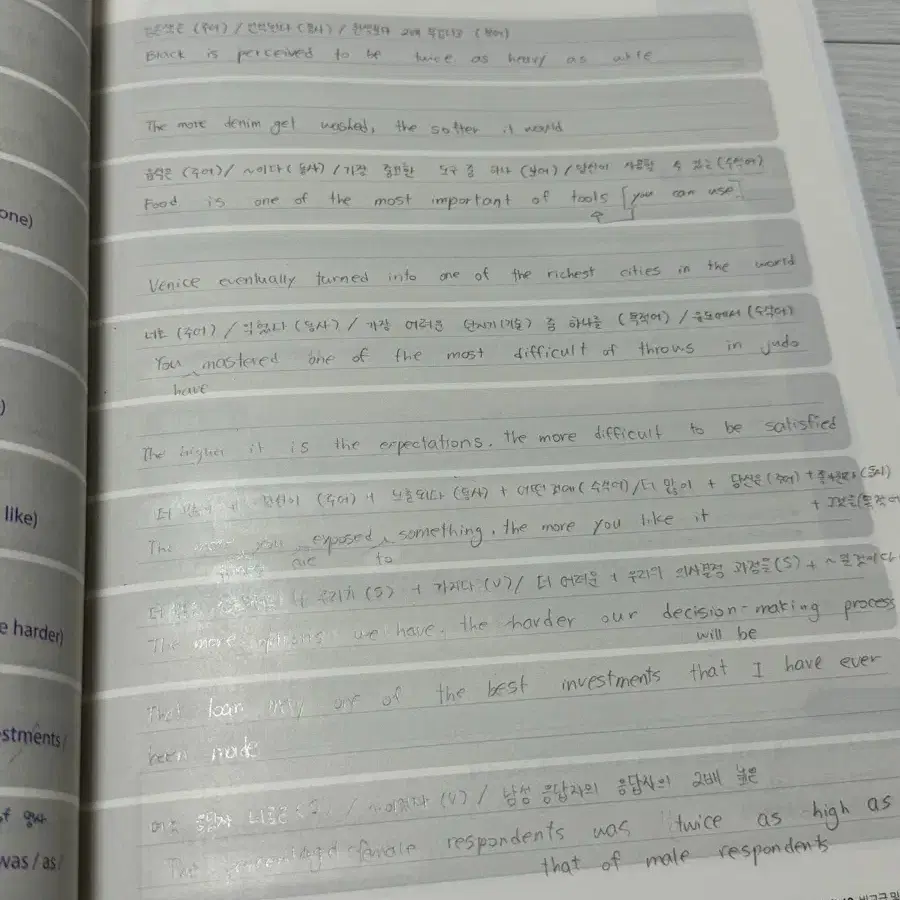 검은색은 (주어) / 인식된다 (동사) / 흰색보다 2배 무겁다고 (보어)
Black is perceived to be twice as heavy as
The more denim get washed, the softer it would
음식은 (주어) / ~이다 (동사) / 가장 중요한 도구 중 하나 (보어) / 당신이 사용할 수 있는 (수식어)
Food is one of the most important of tools [you can use]
one)
Venice eventually turned into one of the richest cities in the world
너는 (주어) / 익혔다 (동사) / 가장 어려운 던지기(기술) 중 하나를 (목적어) / 유도에서 (수식어)
You mastered one of the most difficult of throws in judo
have
)
The higher it is the expectations, the more difficult to be satisfied
더 당신이 (주어) + 노출되다 (동사) + 어떤 것에 (수식어) / 더 많이 + 당신은 (주어) + (동사)
+ 그것을 (목적어
like)
The you exposed something, the more you like it
are to
더 우리가 (S) + 가지다 (V) / 더 어려운 + 우리의 의사결정 과정을 (S) + ~일 것이다
e harder)
The more options we have, the harder our decision-making process
will be
That loan only one of the best investments that I have ever
stments /
been made
/ (V) / 남성 응답자의 응답자의 2배 높은
The female respondents was twice as high as
was / as /
that of male respondents